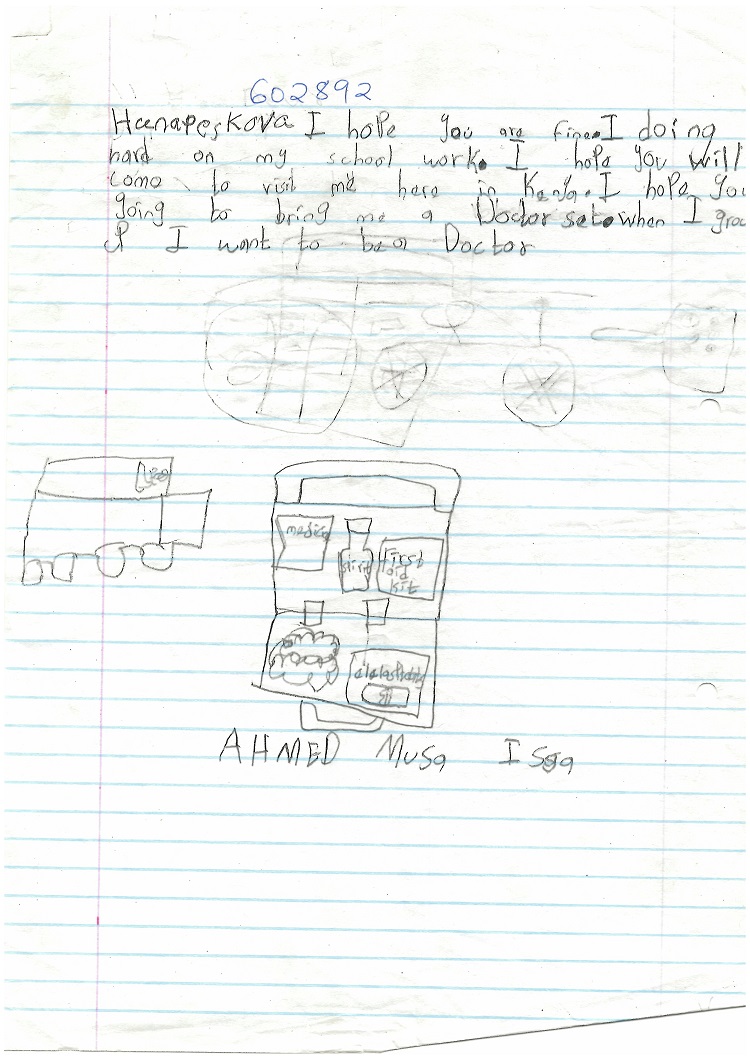 602892
Hanapeskova I hope you are fine. I doing
hard on my school work. I hope you will
come to visit me here in Kenya. I hope you
going to bring me a Doctor set. when I grow
up I want to be a Doctor
first
aid
kit
AHMED Musa Issa